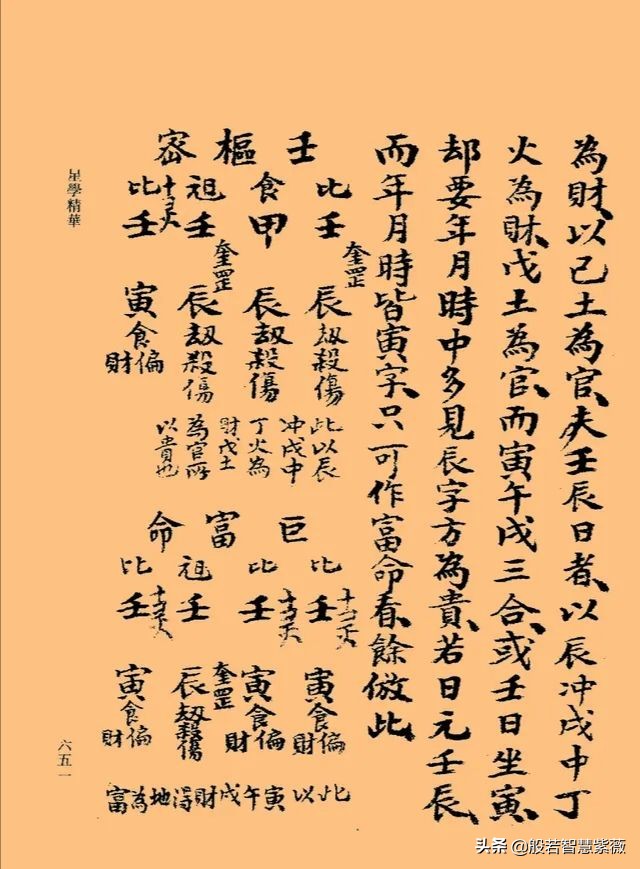 為財、以己土為官、夫壬辰日者、以辰冲戌中丁
火為財、戊土為官、而寅午戌三合、或壬日坐寅、
却要年月時中多見辰字方為貴、若日元壬辰、
而年月時皆寅字、只可作富命看、餘倣此
壬樞密
比壬 奎罡 辰劫殺傷
食甲 辰劫殺傷
祖壬 奎罡 辰劫殺傷
比壬 寅食偏財
此以辰
冲戌中
丁火為
財戊土
為官所
以貴也
巨富命
比壬 寅食偏財
比壬 寅食偏財
祖壬 奎罡 辰劫殺傷
比壬 寅食偏財
此以寅午戌財得地為富
星學精華
六五一
头条 @般若智慧紫薇